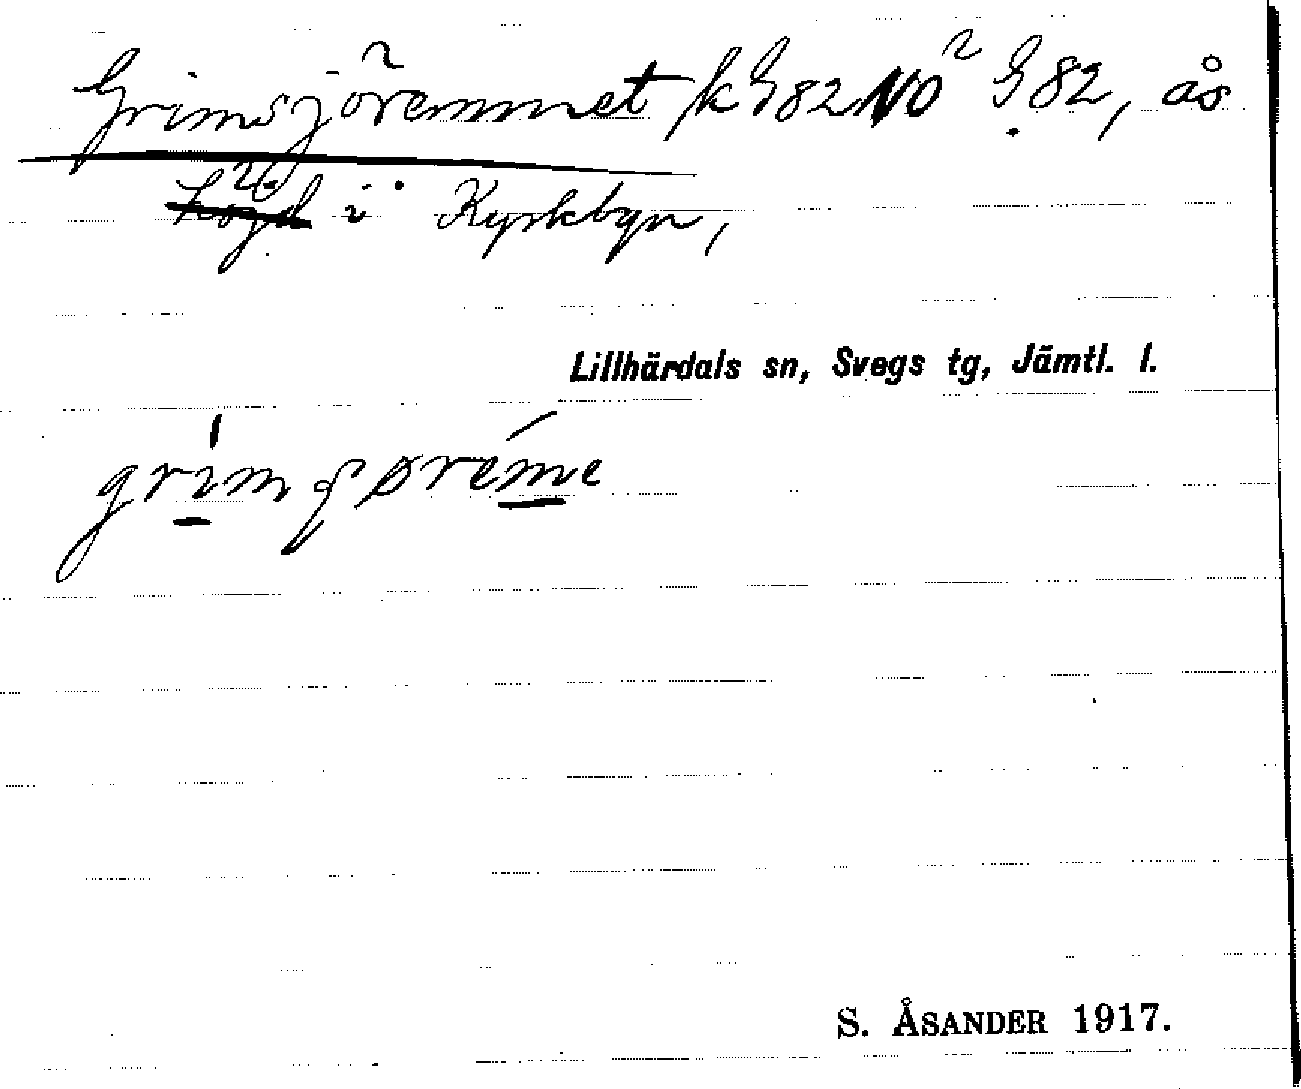 Grimsjöremmet /k G82 NO² G82, ås
höjd i Kyrkbyn,
Lillhärdals sn, Svegs tg, Jämtl. l.
S. ÅSANDER 1917.